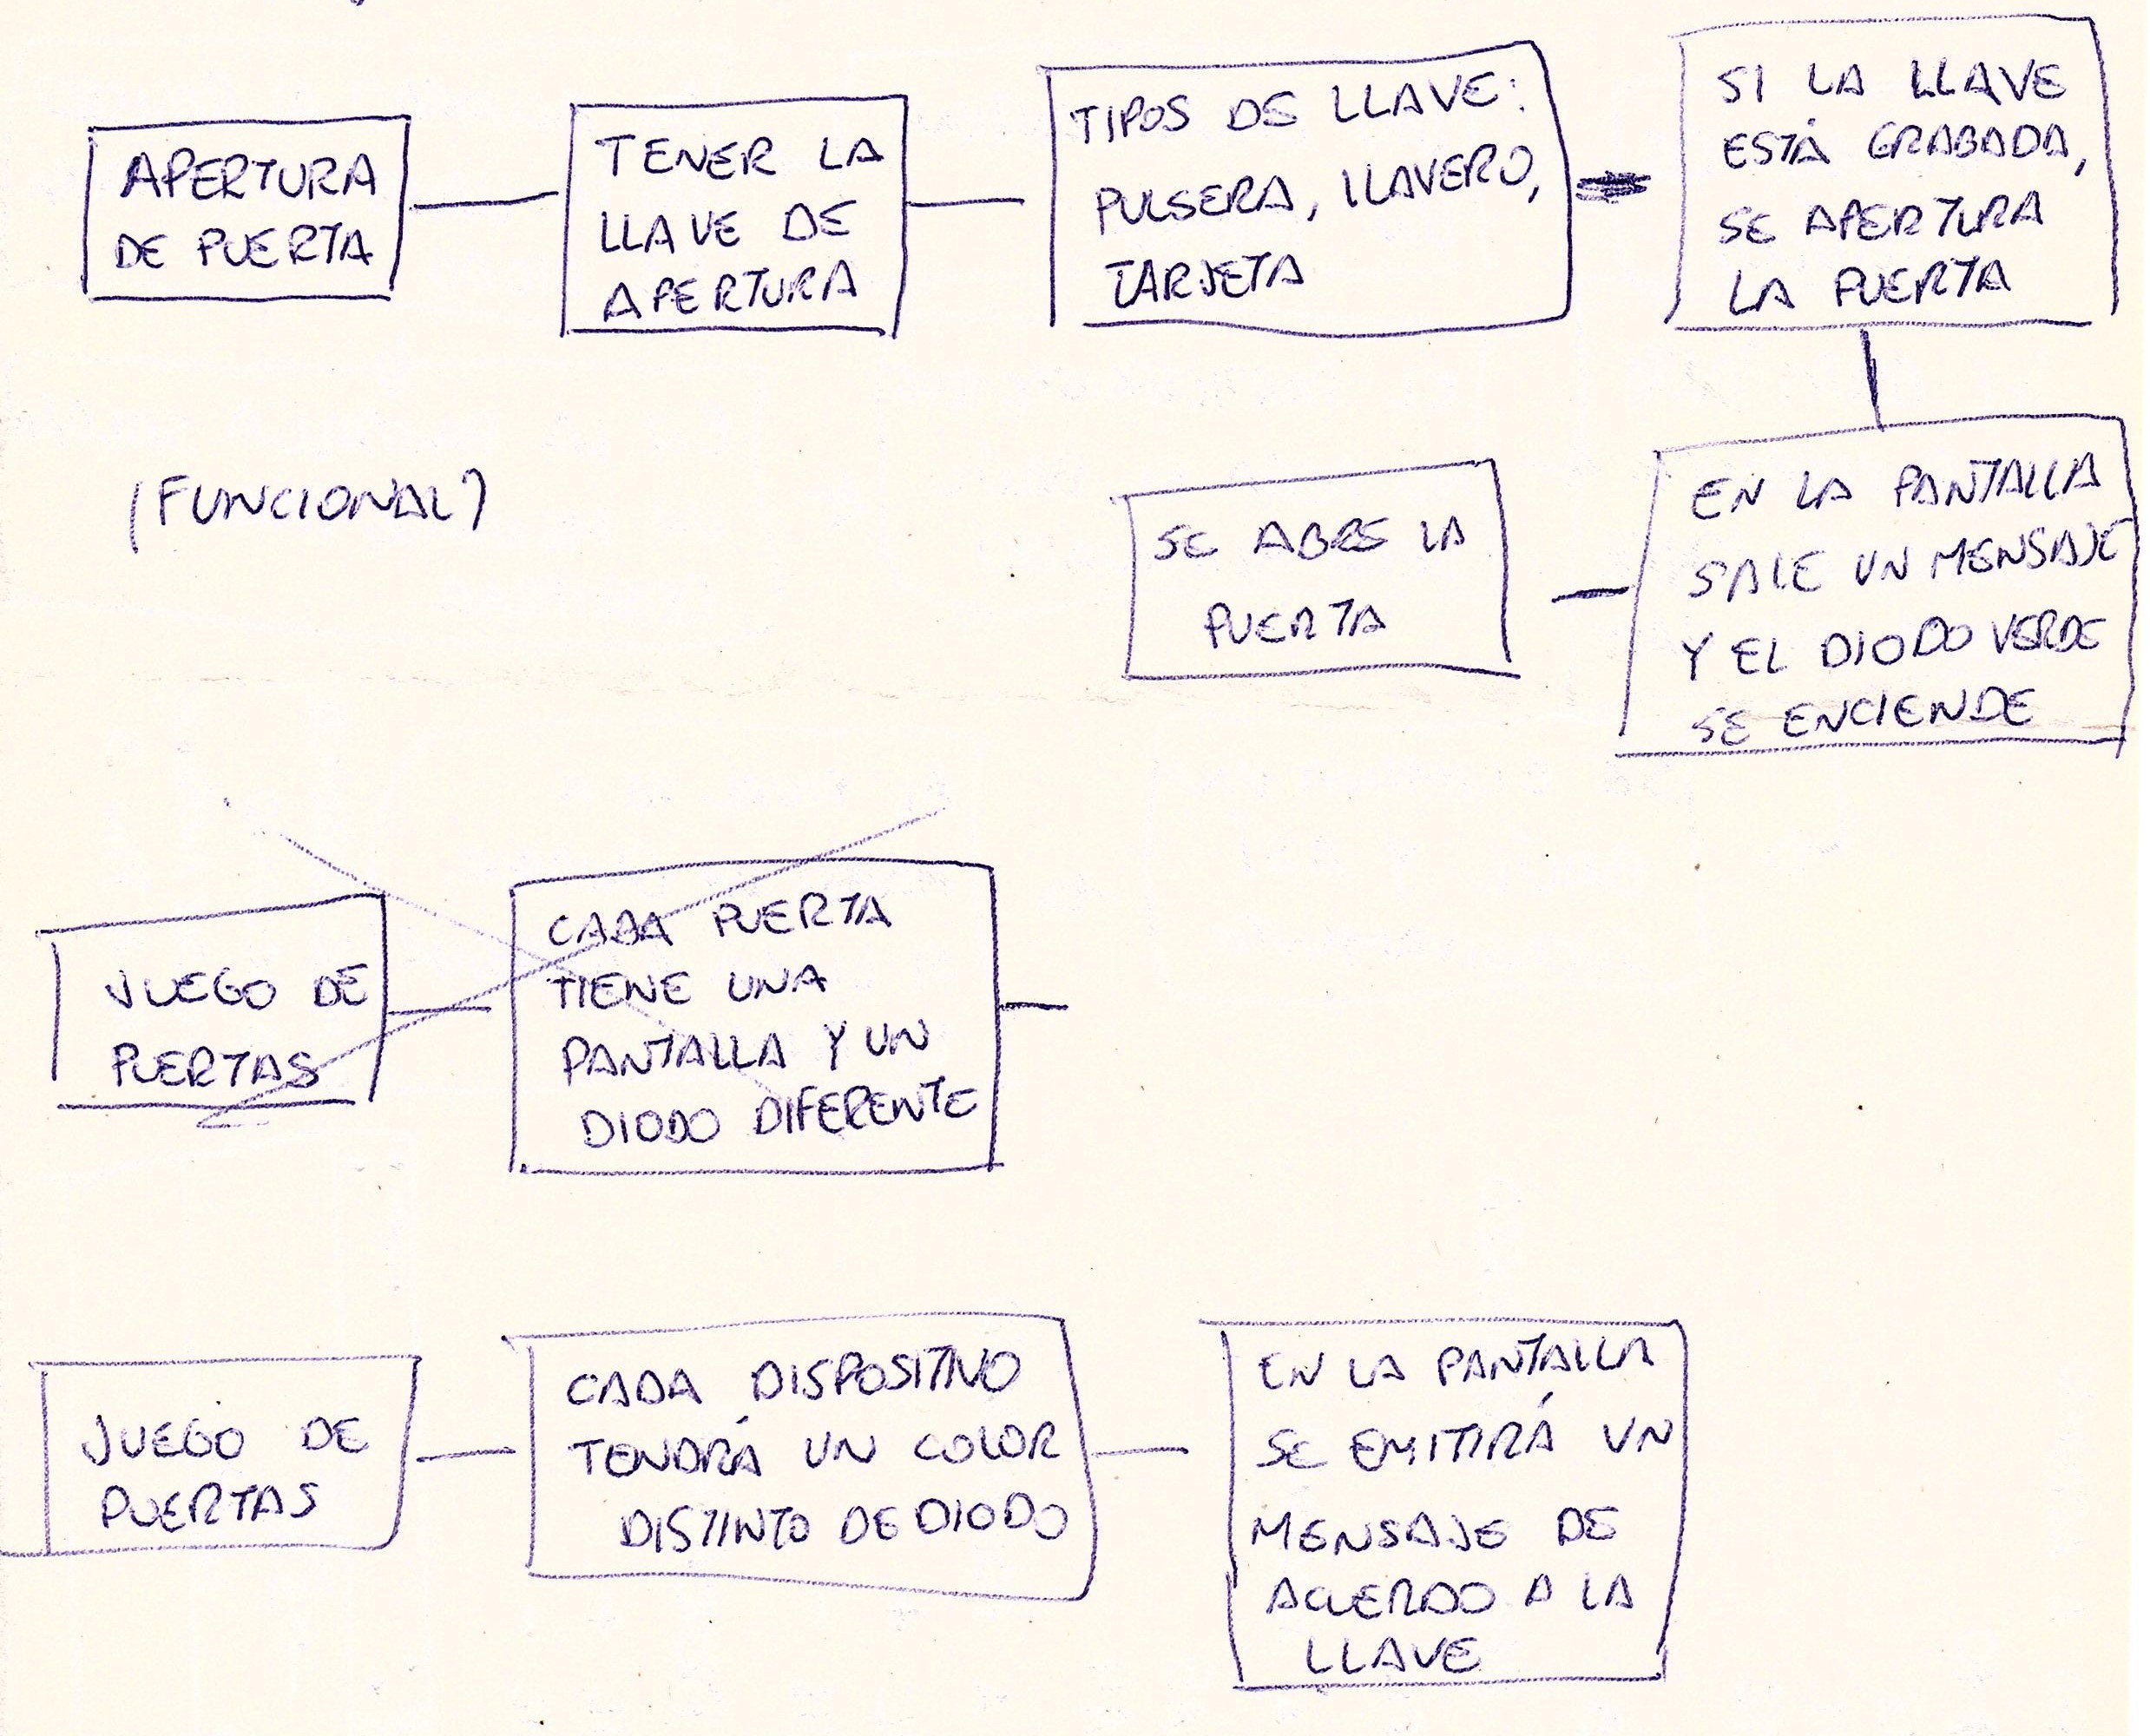 APERTURA
DE PUERTA
TENER LA
LLAVE DE
APERTURA
TIPOS DE LLAVE:
PULSERA, LLAVERO,
TARJETA
SI LA LLAVE
ESTÁ GRABADA,
SE APERTURA
LA PUERTA
(FUNCIONAL)
SE ABRE LA
PUERTA
EN LA PANTALLA
SALE UN MENSAJE
Y EL DIODO VERDE
SE ENCIENDE
JUEGO DE
PUERTAS
CADA PUERTA
TIENE UNA
PANTALLA Y UN
DIODO DIFERENTE
JUEGO DE
PUERTAS
CADA DISPOSITIVO
TENDRÁ UN COLOR
DISTINTO DE DIODO
EN LA PANTALLA
SE EMITIRÁ UN
MENSAJE DE
ACUERDO A LA
LLAVE